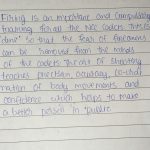 Firing is an important and Compulsary
training for all the NCC cadets. This is
done so that the fear of firearms
can be removed from the minds
of the cadets. The art of shooting
teaches precision, accuracy, co-ordi
nation of body movements and
confidence which helps to make
a better person in public